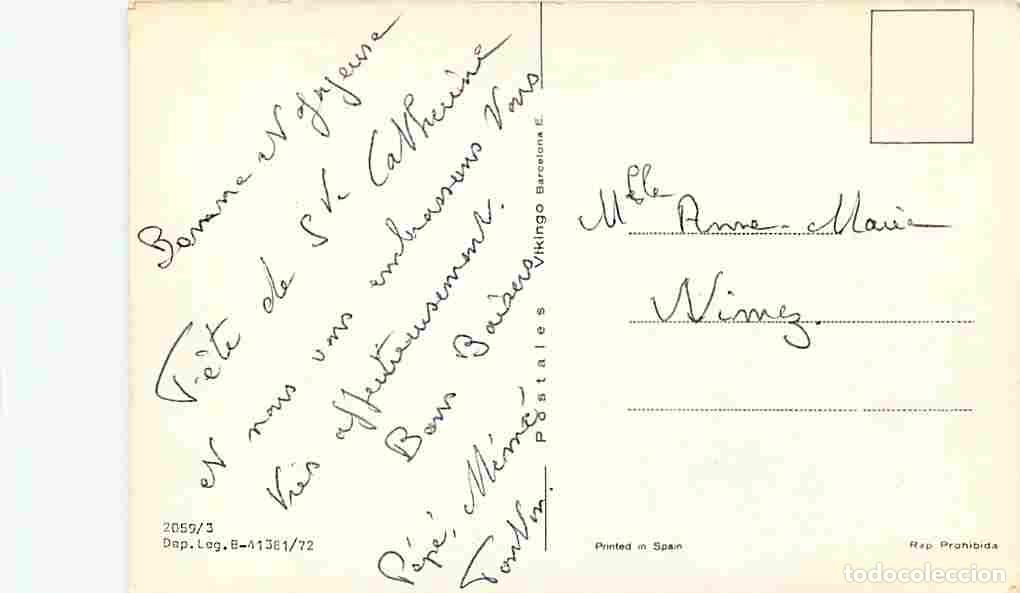 Bonne et Joyeuse
Fête de Ste Catherine
et nous vous embrassons tous
très affectueusement.
Bons Baisers
Pépé, Mémé
Tonton.
Postales Vikingo Barcelona E.
Melle Anne-Marie
Nimez.
2059/3
Dep. Leg. B-41381/72
Printed in Spain
Rep. Prohibida
todocoleccion